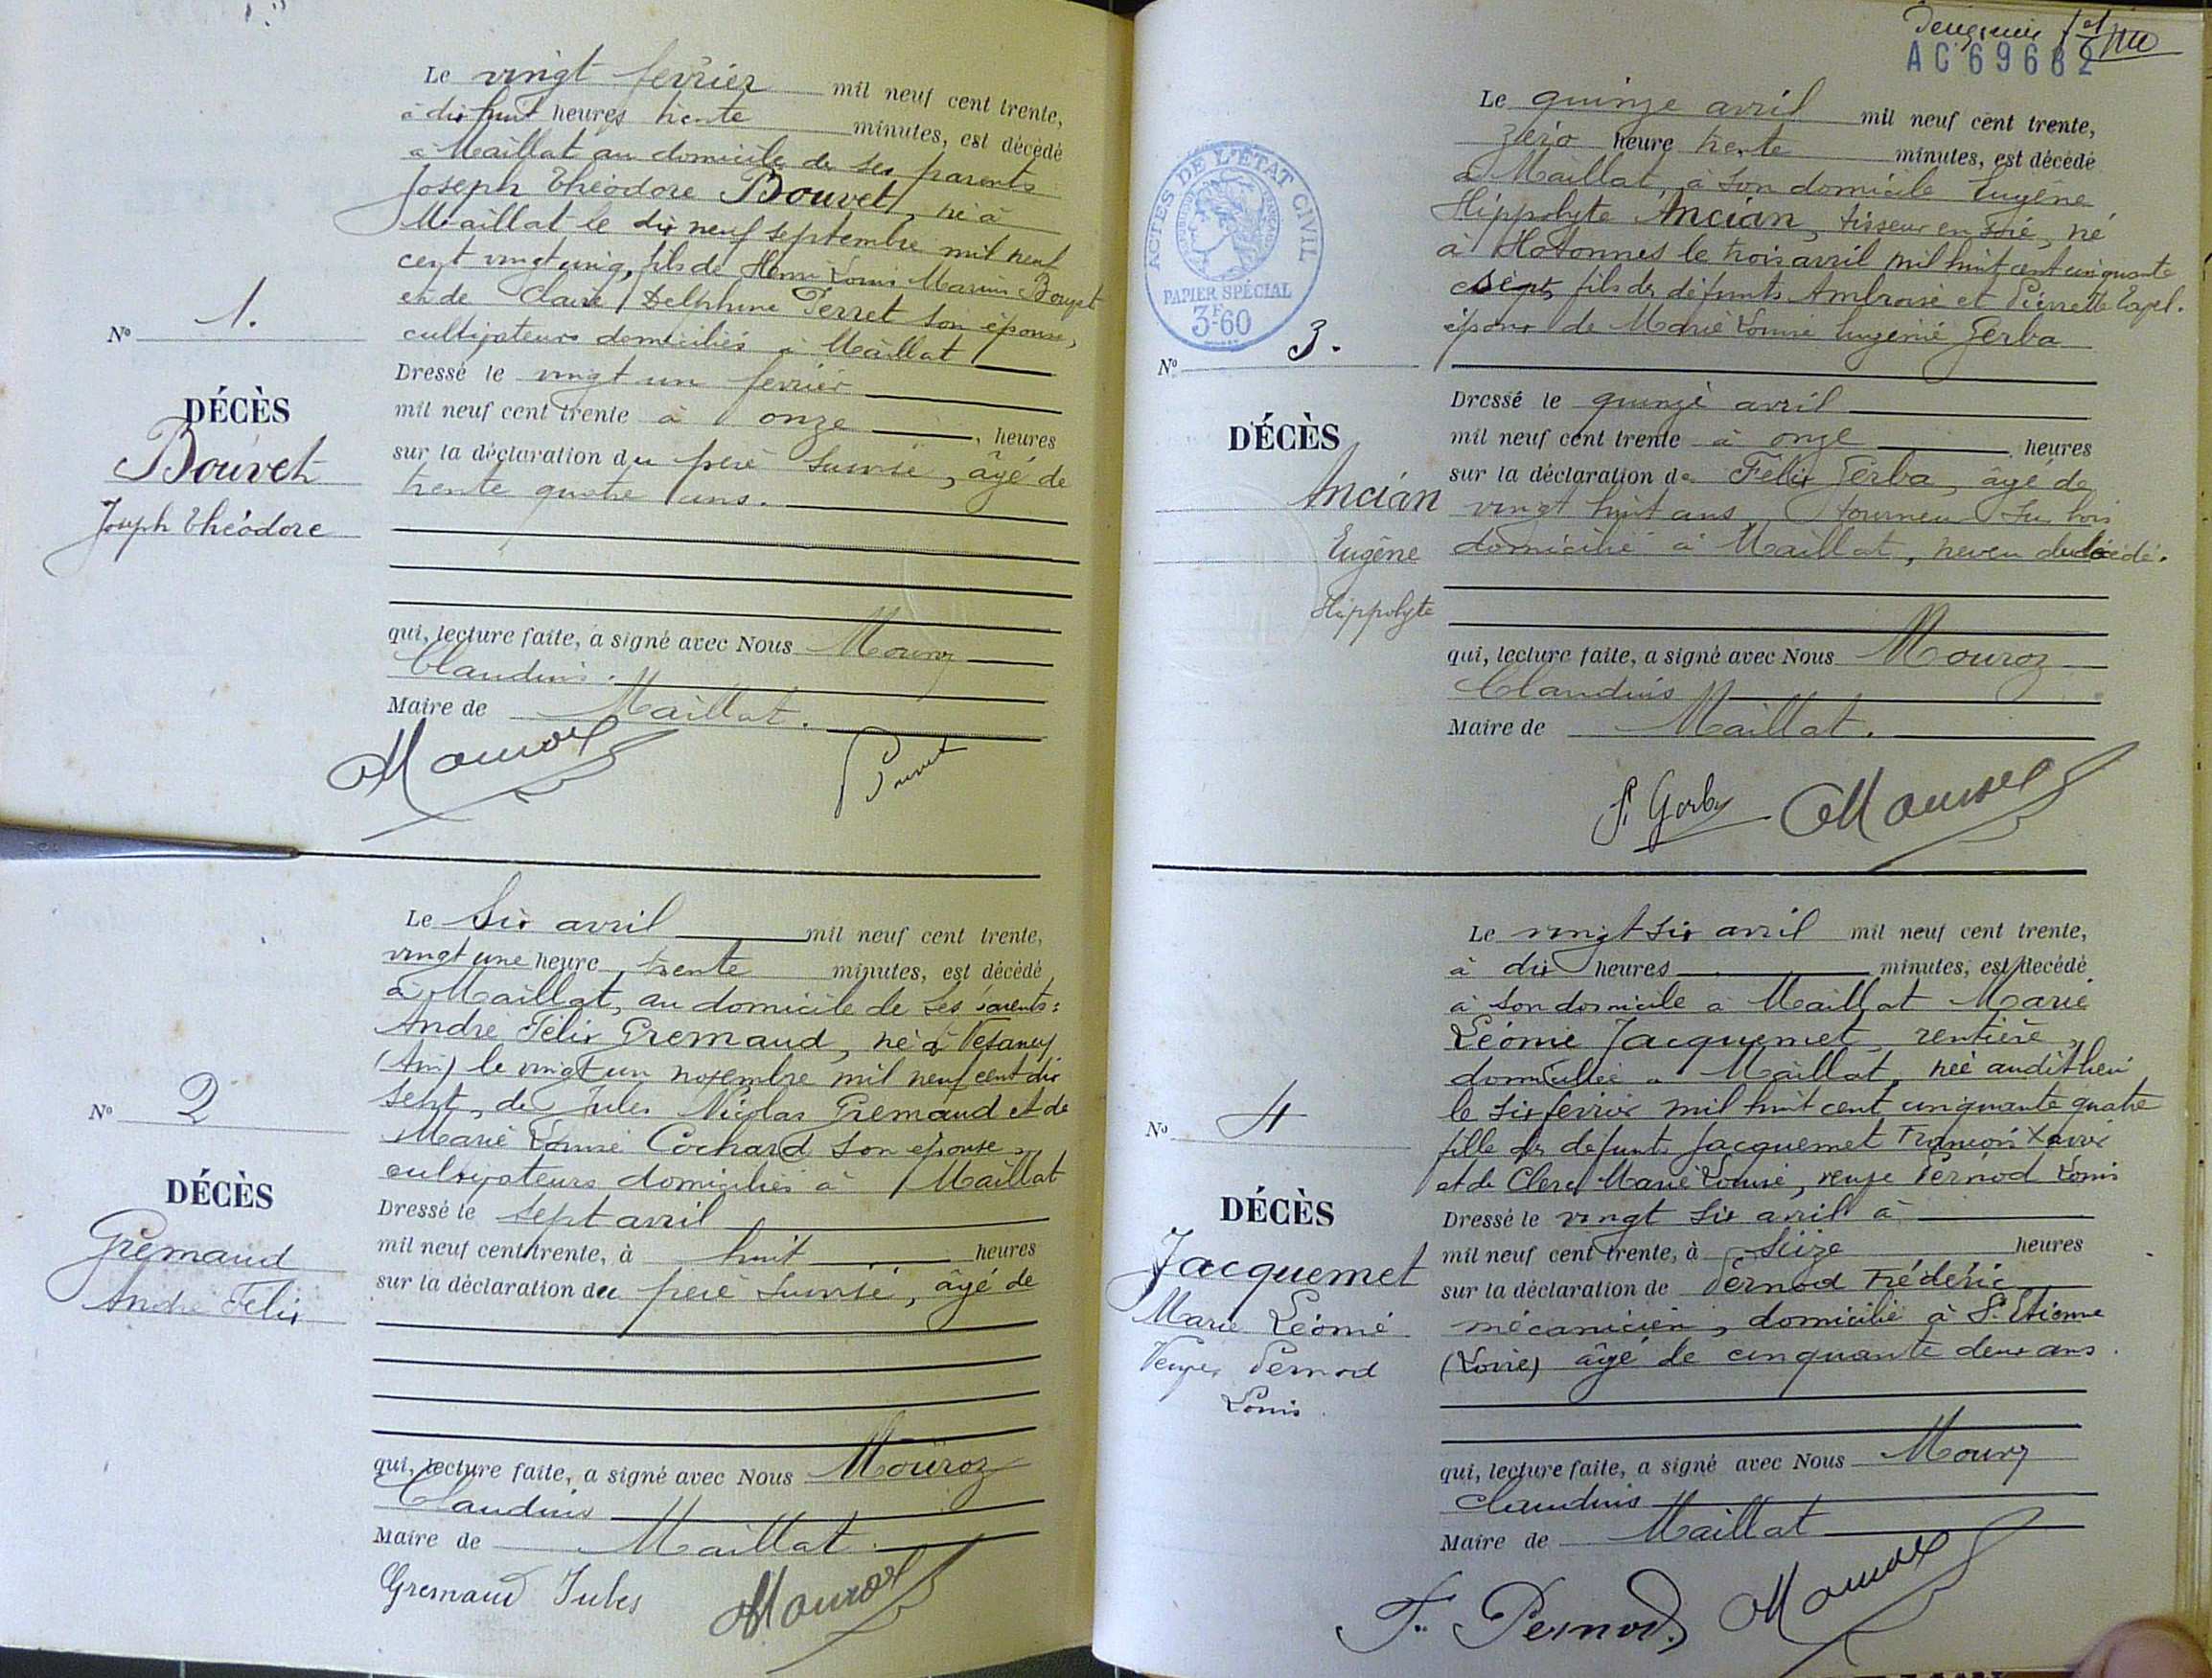 Le vingt février mil neuf cent trente,
à dix huit heures trente minutes, est décédé
à Maillat au domicile de ses parents
Joseph Théodore Bouvet, né à
Maillat le dix neuf septembre mil neuf
cent vingt cinq, fils de Henri Louis Marius Bouvet
et de Claire Delphine Perret son épouse,
cultivateurs domiciliés à Maillat
Nº 1.
DÉCÈS
Bouvet
Joseph Théodore
Dressé le vingt un février
mil neuf cent trente à onze heures
sur la déclaration du père susvisé, âgé de
trente quatre ans.
qui, lecture faite, a signé avec Nous Mouroz
Claudius.
Maire de Maillat.
Mouroz
Le six avril mil neuf cent trente,
vingt une heure trente minutes, est décédé
à Maillat, au domicile de ses parents:
André Félix Gremaud, né à Vesancy
(Ain) le vingt un novembre mil neuf cent dix
sept, de Jules Nicolas Gremaud et de
Marie Louise Cochard son épouse,
cultivateurs domiciliés à Maillat
Nº 2
DÉCÈS
Gremaud
André Félix
Dressé le sept avril
mil neuf cent trente, à huit heures
sur la déclaration du père susvisé, âgé de
qui, lecture faite, a signé avec Nous Mouroz
Claudius
Maire de Maillat.
Gremaud Jules Mouroz
AC 69682
ACTES DE L'ÉTAT CIVIL
RÉPUBLIQUE FRANÇAISE
PAPIER SPÉCIAL
3F60
Le quinze avril mil neuf cent trente,
zéro heure trente minutes, est décédé
à Maillat, à son domicile Eugène
Hippolyte Ancian, tisseur en soie, né
à Hotonnes le trois avril mil huit cent cinquante
sept, fils de défunts Ambroise et Pierrette
époux de Marie Louise Eugénie Gerba
Nº 3.
DÉCÈS
Ancian
Eugène
Hippolyte
Dressé le quinze avril
mil neuf cent trente à onze heures
sur la déclaration de Félix Gerba, âgé de
vingt huit ans, tourneur sur bois
domicilié à Maillat, neveu du décédé.
qui, lecture faite, a signé avec Nous Mouroz
Claudius
Maire de Maillat.
Mouroz
Le vingt six avril mil neuf cent trente,
à dix heures minutes, est décédé
à son domicile à Maillat Marie
Léonie Jacquemet, rentière,
domiciliée à Maillat, née audit lieu
le six février mil huit cent cinquante quatre
fille de défunts Jacquemet François Xavier
et de Clerc Marie Louise, veuve Pernod Louis
Nº 4
DÉCÈS
Jacquemet
Marie Léonie
Veuve Pernod
Louis
Dressé le vingt six avril à
mil neuf cent trente, à seize heures
sur la déclaration de Pernod Frédéric
mécanicien, domicilié à St Etienne
(Loire) âgé de cinquante deux ans.
qui, lecture faite, a signé avec Nous Mouroz
Claudius
Maire de Maillat
F. Pernod. Mouroz